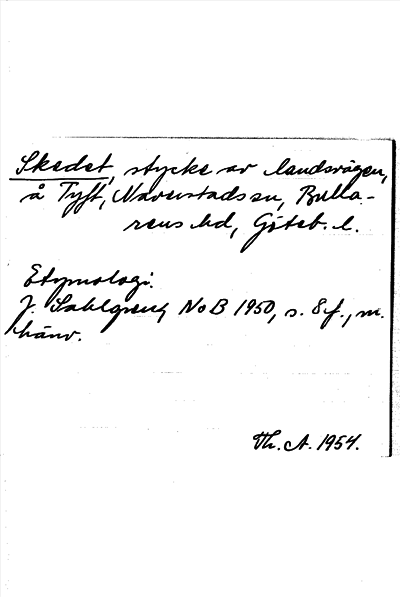 Skedet, stycke av landsvägen,
å Tyft, Naverstads sn, Bulla-
rens hd, Göteb. l.
Etymologi.
J. Sahlgren, NoB 1950, s. 8 f., m.
hänv.
Th. A. 1954.